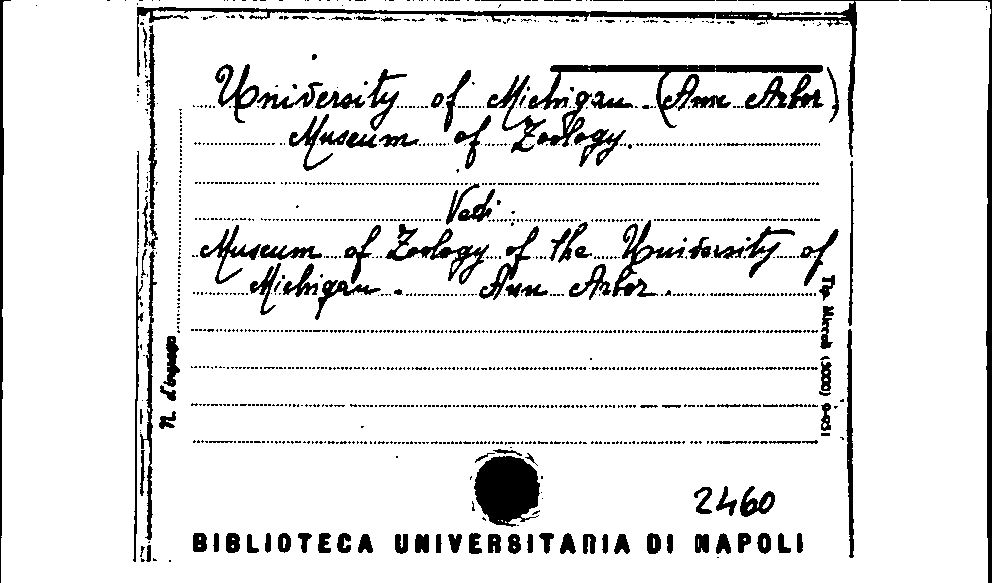 University of Michigan. (Ann Arbor).
Museum of Zoology.
Vedi:
Museum of Zoology of the University of
Michigan. Ann Arbor.
N. d'ingresso
2460
BIBLIOTECA UNIVERSITARIA DI NAPOLI